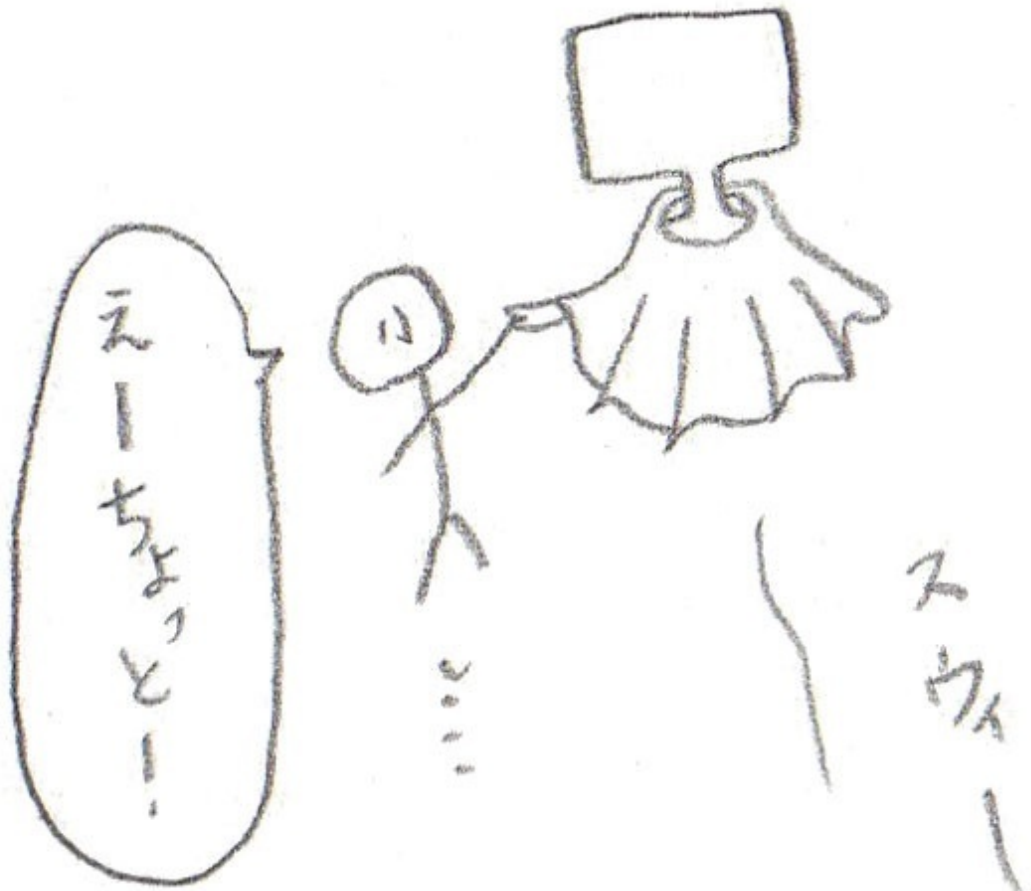 スウィー
えーちょっとー!